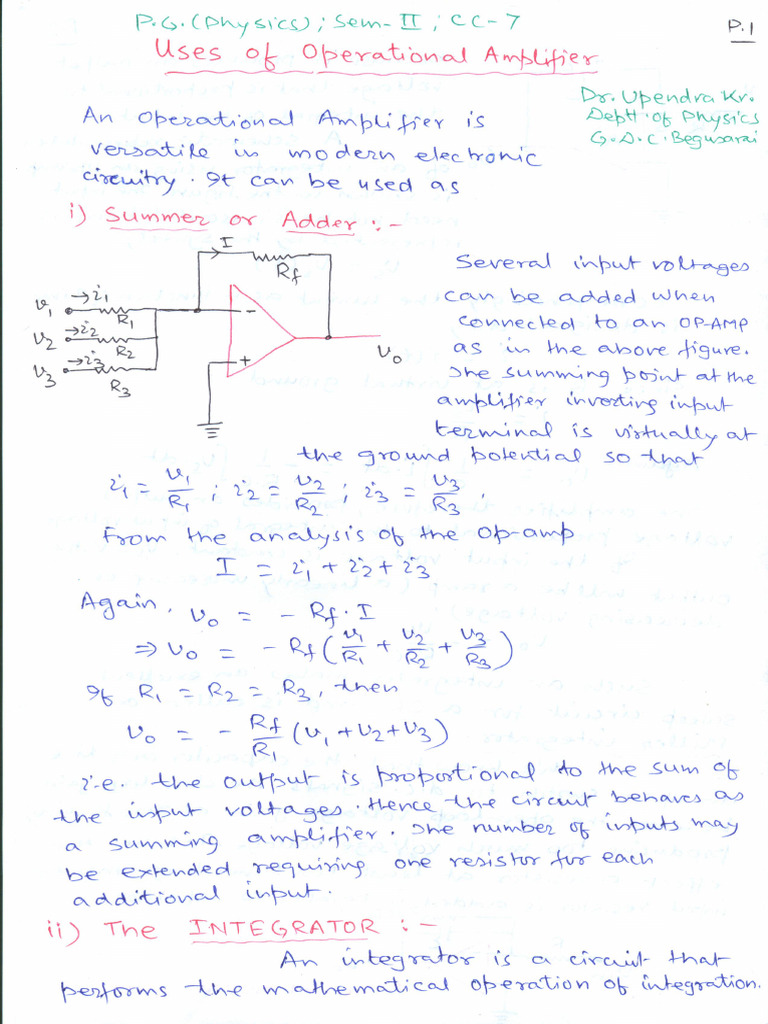 P.G.(Physics); Sem-II; CC-7
P.1
Uses of Operational Amplifier
Dr. Upendra Kr.
Deptt. of Physics
G.D.C. Begusarai
An Operational Amplifier is
versatile in modern electronic
circuitry. It can be used as
i) Summer or Adder :-
I
Rf
v₁ → i₁ R₁
v₂ → i₂ R₂
v₃ → i₃ R₃
-
+
v₀
Several input voltages
can be added when
connected to an OP-AMP
as in the above figure.
The summing point at the
amplifier inverting input
terminal is virtually at
the ground potential so that
i₁ = v₁/R₁ ; i₂ = v₂/R₂ ; i₃ = v₃/R₃ ,
From the analysis of the Op-amp
I = i₁ + i₂ + i₃
Again, v₀ = - Rf . I
⇒ v₀ = - Rf (v₁/R₁ + v₂/R₂ + v₃/R₃)
If R₁ = R₂ = R₃, then
v₀ = - Rf/R₁ (v₁ + v₂ + v₃)
i.e. the output is proportional to the sum of
the input voltages. Hence the circuit behaves as
a summing amplifier. The number of inputs may
be extended requiring one resistor for each
additional input.
ii) The INTEGRATOR :-
An integrator is a circuit that
performs the mathematical operation of integration.